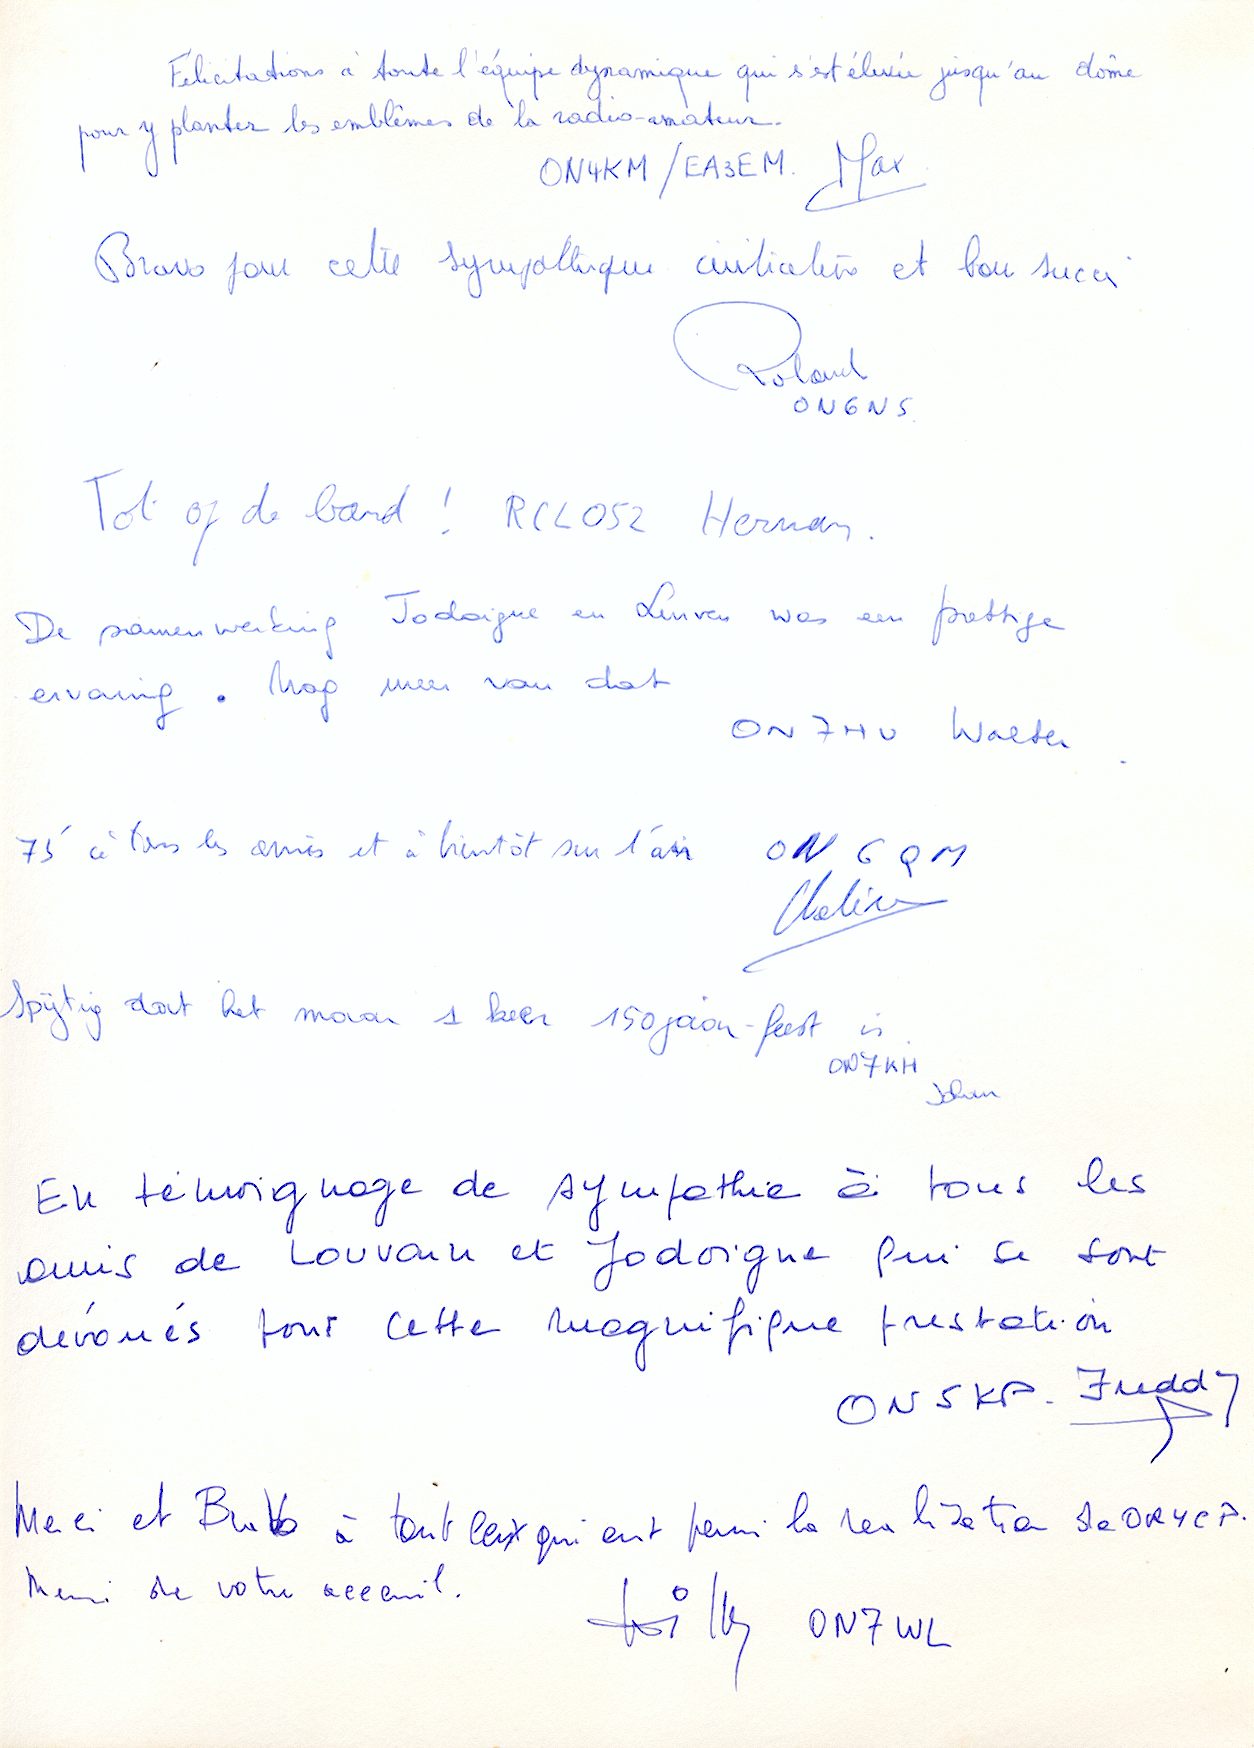 Félicitations à toute l'équipe dynamique qui s'est élevée jusqu'au dôme
pour y planter les emblèmes de la radio-amateur.
ON4KM/EA3EM. Max
Bravo pour cette sympathique initiative et bon succès
Roland
ON6NS.
Tot op de band! RCL052 Herman.
De samenwerking Jodoigne en Leuven was een prettige
ervaring. Nog meer van dat
ON7HU Walter
73' à tous les amis et à bientôt sur l'air ON6QM
Spijtig dat het maar 1 keer 150 jaar-feest is.
ON7KH
Johan
En témoignage de sympathie à tous les
amis de Louvain et Jodoigne qui se sont
dévoués pour cette magnifique prestation
ON5KP. Freddy
Merci et Bravo à tout ceux qui ont permi la realisation de OR4CP.
Merci de votre acceuil.
Willy ON7WL